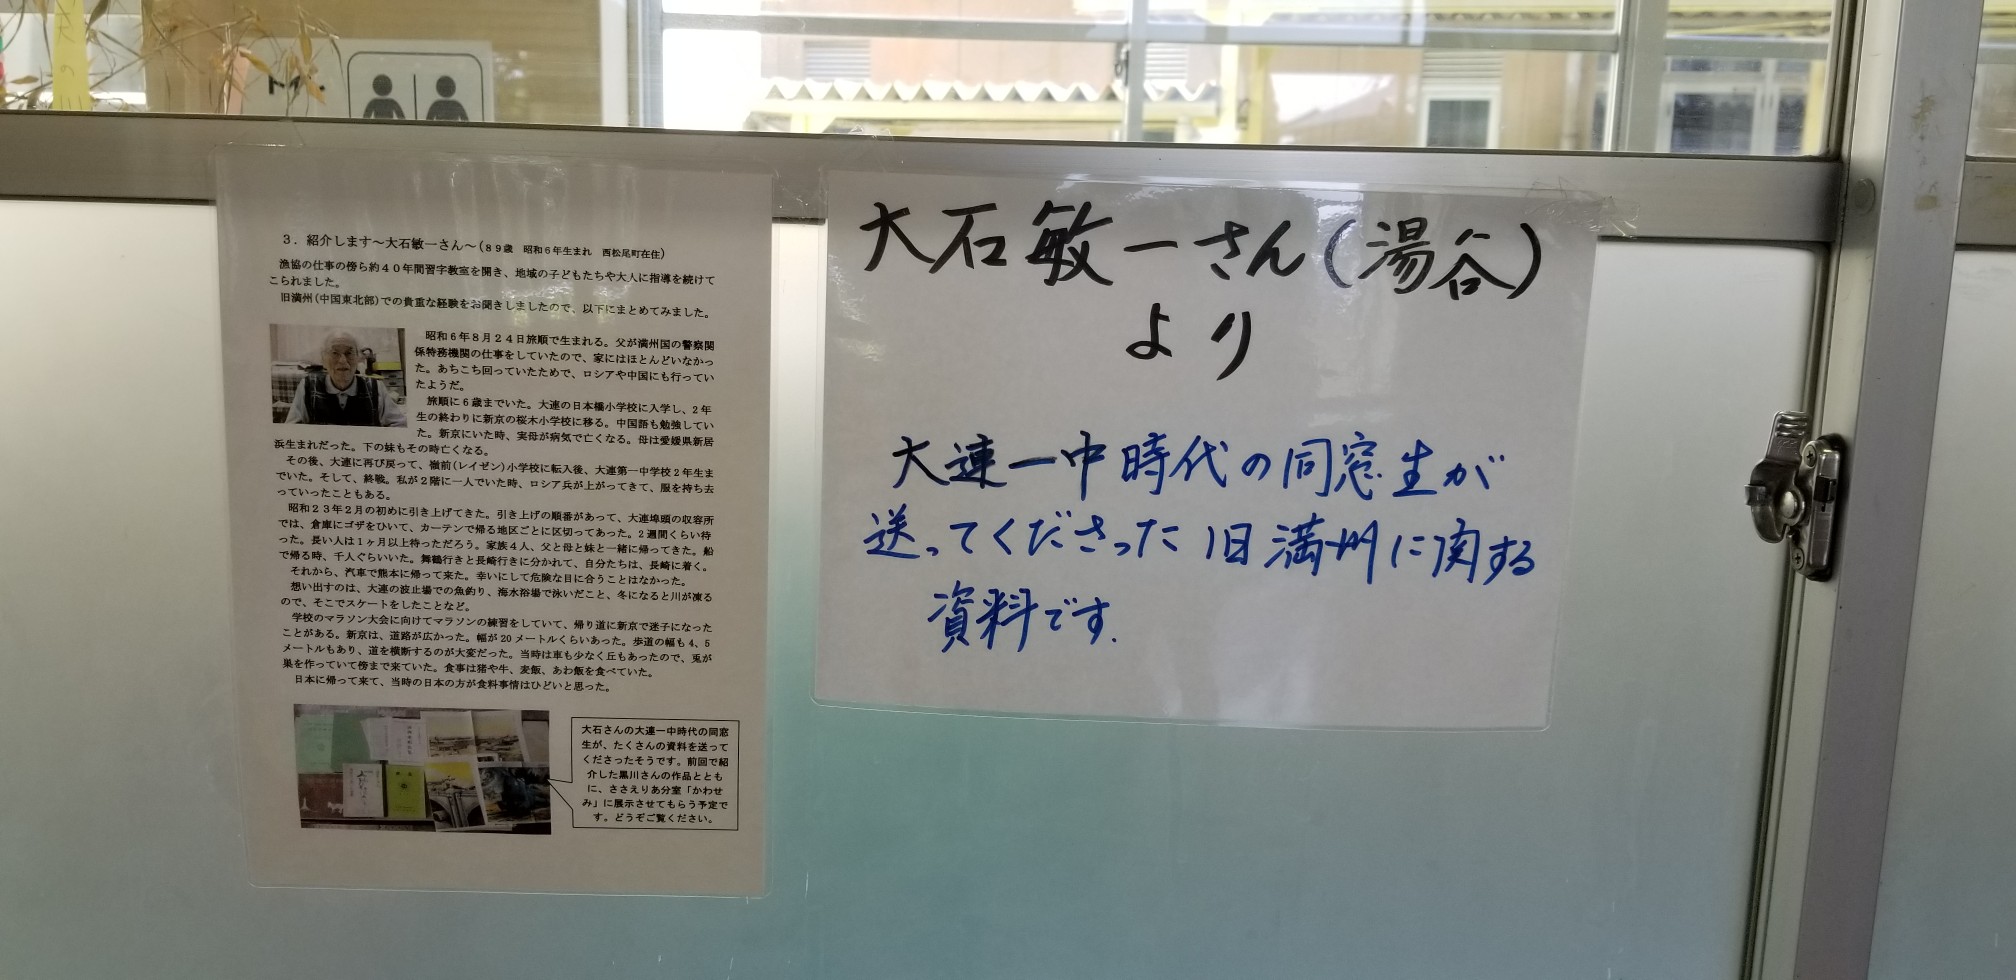 3．紹介します～大石敏一さん～（89歳　昭和6年生まれ　西松尾町在住）
漁協の仕事の傍ら約40年間習字教室を開き、地域の子どもたちや大人に指導を続けて
こられました。
旧満州（中国東北部）での貴重な経験をお聞きしましたので、以下にまとめてみました。
昭和6年8月24日旅順で生まれる。父が満州国の警察関
係特務機関の仕事をしていたので、家にはほとんどいなかっ
た。あちこち回っていたためで、ロシアや中国にも行ってい
たようだ。
旅順に6歳までいた。大連の日本橋小学校に入学し、2年
生の終わりに新京の桜木小学校に移る。中国語も勉強してい
た。新京にいた時、実母が病気で亡くなる。母は愛媛県新居
浜生まれだった。下の妹もその時亡くなる。
その後、大連に再び戻って、嶺前（レイゼン）小学校に転入後、大連第一中学校2年生ま
でいた。そして、終戦。私が2階に一人でいた時、ロシア兵が上がってきて、服を持ち去
っていったこともある。
昭和23年2月の初めに引き上げてきた。引き上げの順番があって、大連埠頭の収容所
では、倉庫にゴザをひいて、カーテンで帰る地区ごとに区切ってあった。2週間くらい待
った。長い人は1ヶ月以上待っただろう。家族4人、父と母と妹と一緒に帰ってきた。船
で帰る時、千人ぐらいいた。舞鶴行きと長崎行きに分かれて、自分たちは、長崎に着く。
それから、汽車で熊本に帰って来た。幸いにして危険な目に合うことはなかった。
想い出すのは、大連の波止場での魚釣り、海水浴場で泳いだこと、冬になると川が凍る
ので、そこでスケートをしたことなど。
学校のマラソン大会に向けてマラソンの練習をしていて、帰り道に新京で迷子になった
ことがある。新京は、道路が広かった。幅が20メートルくらいあった。歩道の幅も4、5
メートルもあり、道を横断するのが大変だった。当時は車も少なく丘もあったので、兎が
巣を作っていて傍まで来ていた。食事は猪や牛、麦飯、あわ飯を食べていた。
日本に帰って来て、当時の日本の方が食料事情はひどいと思った。
大石さんの大連一中時代の同窓
生が、たくさんの資料を送って
くださったそうです。前回で紹
介した黒川さんの作品ととも
に、ささえりあ分室「かわせ
み」に展示させてもらう予定で
す。どうぞご覧ください。
大石敏一さん（湯谷）
より
大連一中時代の同窓生が
送ってくださった旧満州に関する
資料です．